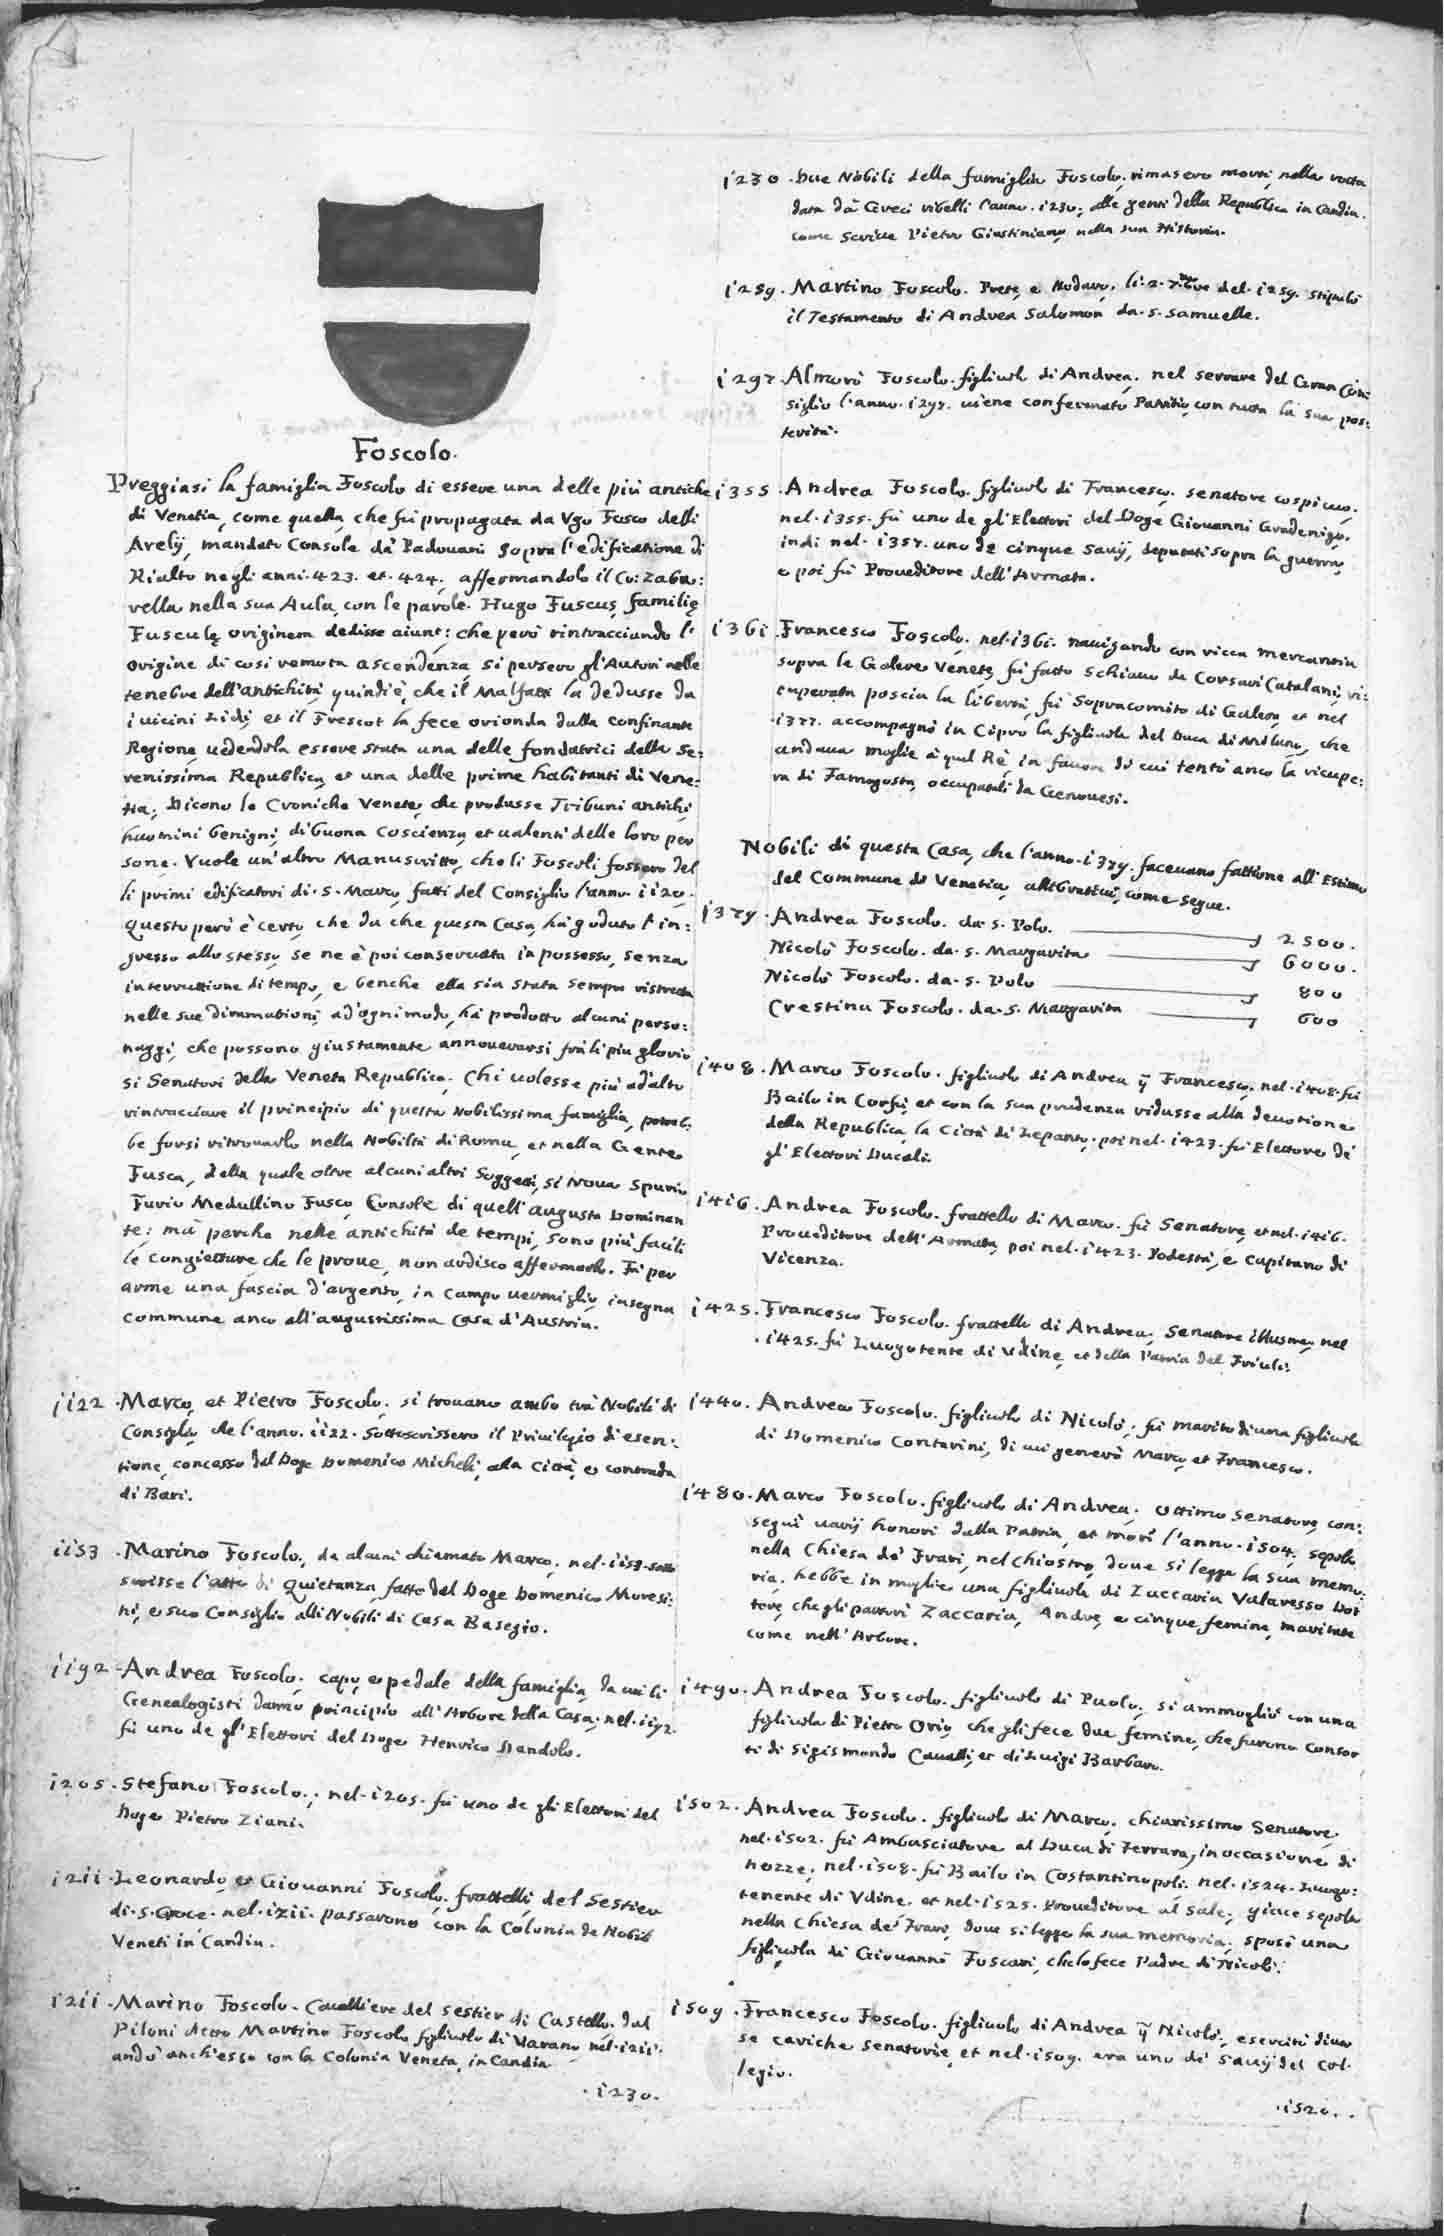 Foscolo.
Preggiasi la famiglia Foscolo di essere una delle più antiche
di Venetia, come quella, che fù propagata da Vgo Fusco delli
Arelij, mandato Console dà Padouani sopra l'edificatione di
Rialto negli anni. 423. et. 424, affermandolo il Co: Zaba:
rella nella sua Aula, con le parole. Hugo Fuscus, familię
Fusculę originem dedisse aiunt: che però rintracciando l'
origine di così remota ascendenza, si persero gl'Autori nelle
tenebre dell'antichità, quindi è, che il Malfatti la dedusse da
i uicini Lidi, et il Frescot la fece orionda dalla confinante
Regione, uedendola essere stata una delle fondatrici della Se:
renissima Republica, et una delle prime habitanti di Vene:
tia; Dicono le Croniche Venete, che produsse Tribuni antichi,
huomini benigni, di buona coscienza, et ualenti delle loro per
sone. Vuole un'altro Manuscritto, che li Foscoli fossero del
li primi edificatori di. S. Marco, fatti del Consiglio l'anno. 1120.
questo però è certo, che da che questa Casa, hà goduto l'in:
gresso allo stesso, se ne è poi conseruata in possesso, senza
interruttione di tempo, e benche ella sia stata sempre ristretta
nelle sue diramationi, ad'ogni modo, hà prodotto alcuni perso:
naggi, che possono giustamente annouerarsi frà li più glorio
si Senatori della Veneta Republica. Chi uolesse più ad'alto
rintracciare il principio di questa Nobilissima famiglia, potreb:
be forsi ritrouarlo nella Nobiltà di Roma, et nella Gente
Fusca, della quale oltre alcuni altri Soggetti, si troua Spurio
Furio Medullino Fusco, Console di quell'augusta Dominan
te: mà perche nelle antichità de tempi, sono più facili
le congietture, che le proue, non ardisco affermarlo. Fà per
arme una fascia d'argento, in campo uermiglio, insegna
commune anco all'augustissima Casa d'Austria.
1122. Marco, et Pietro Foscolo, si trouano ambo trà Nobili di
Consiglio, che l'anno. 1122. Sottoscrissero il Priuilegio di esen:
tione, concesso dal Doge Domenico Micheli, alla Città, e contrada
di Bari.
1153. Marino Foscolo, da alcuni chiamato Marco, nel. 1153. sotto
scrisse l'atto di Quietanza, fatto dal Doge Domenico Moresi:
ni, e suo Consiglio alli Nobili di Casa Basegio.
1192. Andrea Foscolo, capo, e pedale della famiglia, da cui li
Genealogisti danno principio all'Arbore della Casa, nel. 1192.
fù uno de gl'Elettori del Doge Henrico Dandolo.
1205. Stefano Foscolo, nel. 1205. fù uno de gli Elettori del
Doge Pietro Ziani.
1211. Leonardo, et Giouanni Foscolo, frattelli, del Sestier
di. S. Croce. nel. 1211. passarono con la Colonia de Nobili
Veneti in Candia.
1211. Marino Foscolo. Caualliere del sestier di Castello. dal
Piloni detto Martino Foscolo, figliuolo di Varano, nel. 1211.
andò anch'esso con la Colonia Veneta, in Candia
. 1230.
1230. Due Nobili della famiglia Foscolo, rimasero morti, nella rotta
data dà Greci ribelli l'anno. 1230. alle genti della Republica in Candia.
come scriue Pietro Giustiniano, nella sua Historia.
1259. Martino Foscolo. Prete, e Nodaro. li. 2. 7.bre del. 1259. stipulò
il Testamento di Andrea Salomon da. S. Samuelle.
1297. Almorò Foscolo. figliuolo di Andrea, nel serrare del Gran Con:
siglio l'anno. 1297. uiene confermato Patritio, con tutta la sua pos:
terità.
1355. Andrea Foscolo. figliuolo di Francesco, senatore cospicuo,
nel. 1355. fù uno de gl'Elettori del Doge Giouanni Gradenigo,
indi nel. 1357. uno de cinque Sauij, deputati sopra la guerra,
e poi fù Proueditore dell'Armata.
1361. Francesco Foscolo, nel. 1361. nauigando con ricca mercantia
sopra le Galere Venete, fù fatto schiauo da Corsari Catalani, ri:
cuperata poscia la libertà, fù Sopracomito di Galera, et nel
.1377. accompagnò in Cipro la figliuola del Duca di Milano, che
andaua moglie à quel Rè, in fauore di cui tentò anco la ricupe:
ra di Famagosta, occupata dà Genouesi.
Nobili di questa Casa, che l'anno. 1379. faceuano fattione all'Estimo
del Commune di Venetia, come segue.
1379. Andrea Foscolo. da. S. Polo. 2500.
Nicolò Foscolo. da. S. Margarita 6000.
Nicolò Foscolo. da. S. Polo 800
Crestina Foscolo. da. S. Margarita 600
1408. Marco Foscolo. figliuolo di Andrea q̃ Francesco, nel. 1408. fù
Bailo in Corfù, et con la sua prudenza ridusse alla deuotione
della Republica, la Città di Lepanto, poi nel. 1423. fù Elettore de
gl'Elettori Ducali.
1416. Andrea Foscolo. frattello di Marco. fù Senatore, et nel. 1416.
Proueditore dell'Armata, poi nel. 1423. Podestà, e Capitano di
Vicenza.
1425. Francesco Foscolo. frattello di Andrea, Senatore illustre, nel
.1425. fù Luogotente di Vdine, et della Patria del Friuli.
1440. Andrea Foscolo. figliuolo di Nicolò, fù marito di una figliuola
di Domenico Contarini, di cui generò Marco, et Francesco.
1480. Marco Foscolo. figliuolo di Andrea, Ottimo Senatore, con:
seguì uarij honori dalla Patria, et morì l'anno. 1504. sepolto
nella Chiesa de' Frari, nel Chiostro, doue si legge la sua memo:
ria. hebbe in moglie una figliuola di Zaccaria Valaresso Dot
tore, che gli partorì Zaccaria, Andrea, e cinque femine, maritate
come nell'Arbore.
1490. Andrea Foscolo. figliuolo di Paolo, si ammogliò con una
figliuola di Pietro Orio, che gli fece due femine, che furono consor
ti di Sigismondo Caualli, et di Luigi Barbaro.
1502. Andrea Foscolo. figliuolo di Marco, chiarissimo Senatore,
nel. 1502. fù Ambasciatore al Duca di Ferrara, in occasione di
nozze, nel. 1508. fù Bailo in Costantinopoli. nel. 1524. Luogo:
tenente di Vdine. et nel. 1525. Proueditore al Sale, giace sepolto
nella Chiesa de' Frari, doue si legge la sua memoria, sposò una
figliuola di Giouanni Foscari, che lo fece Padre di Nicolò.
1509. Francesco Foscolo. figliuolo di Andrea q̃ Nicolò, esercitò diuer
se cariche senatorie, et nel. 1509. era uno de' Sauij del Col:
legio.
.1520.